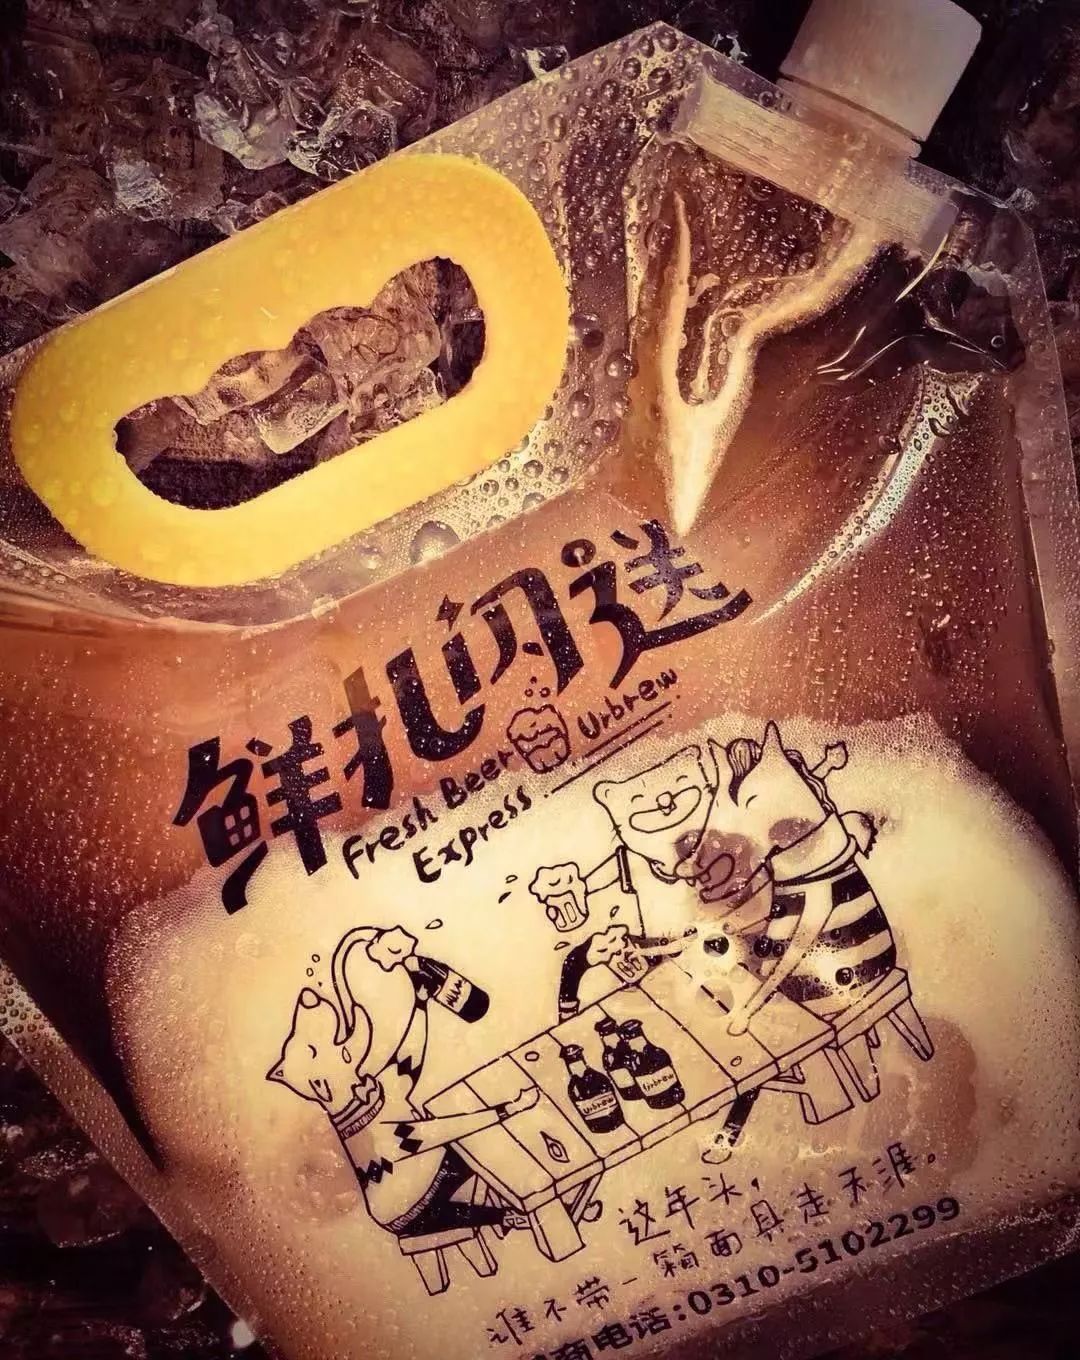 鲜扎闪送
Fresh Beer Urbrew
Express
Urbrew
Urbrew
这年头，
谁不带一箱面具走天涯。
商电话:0310-5102299